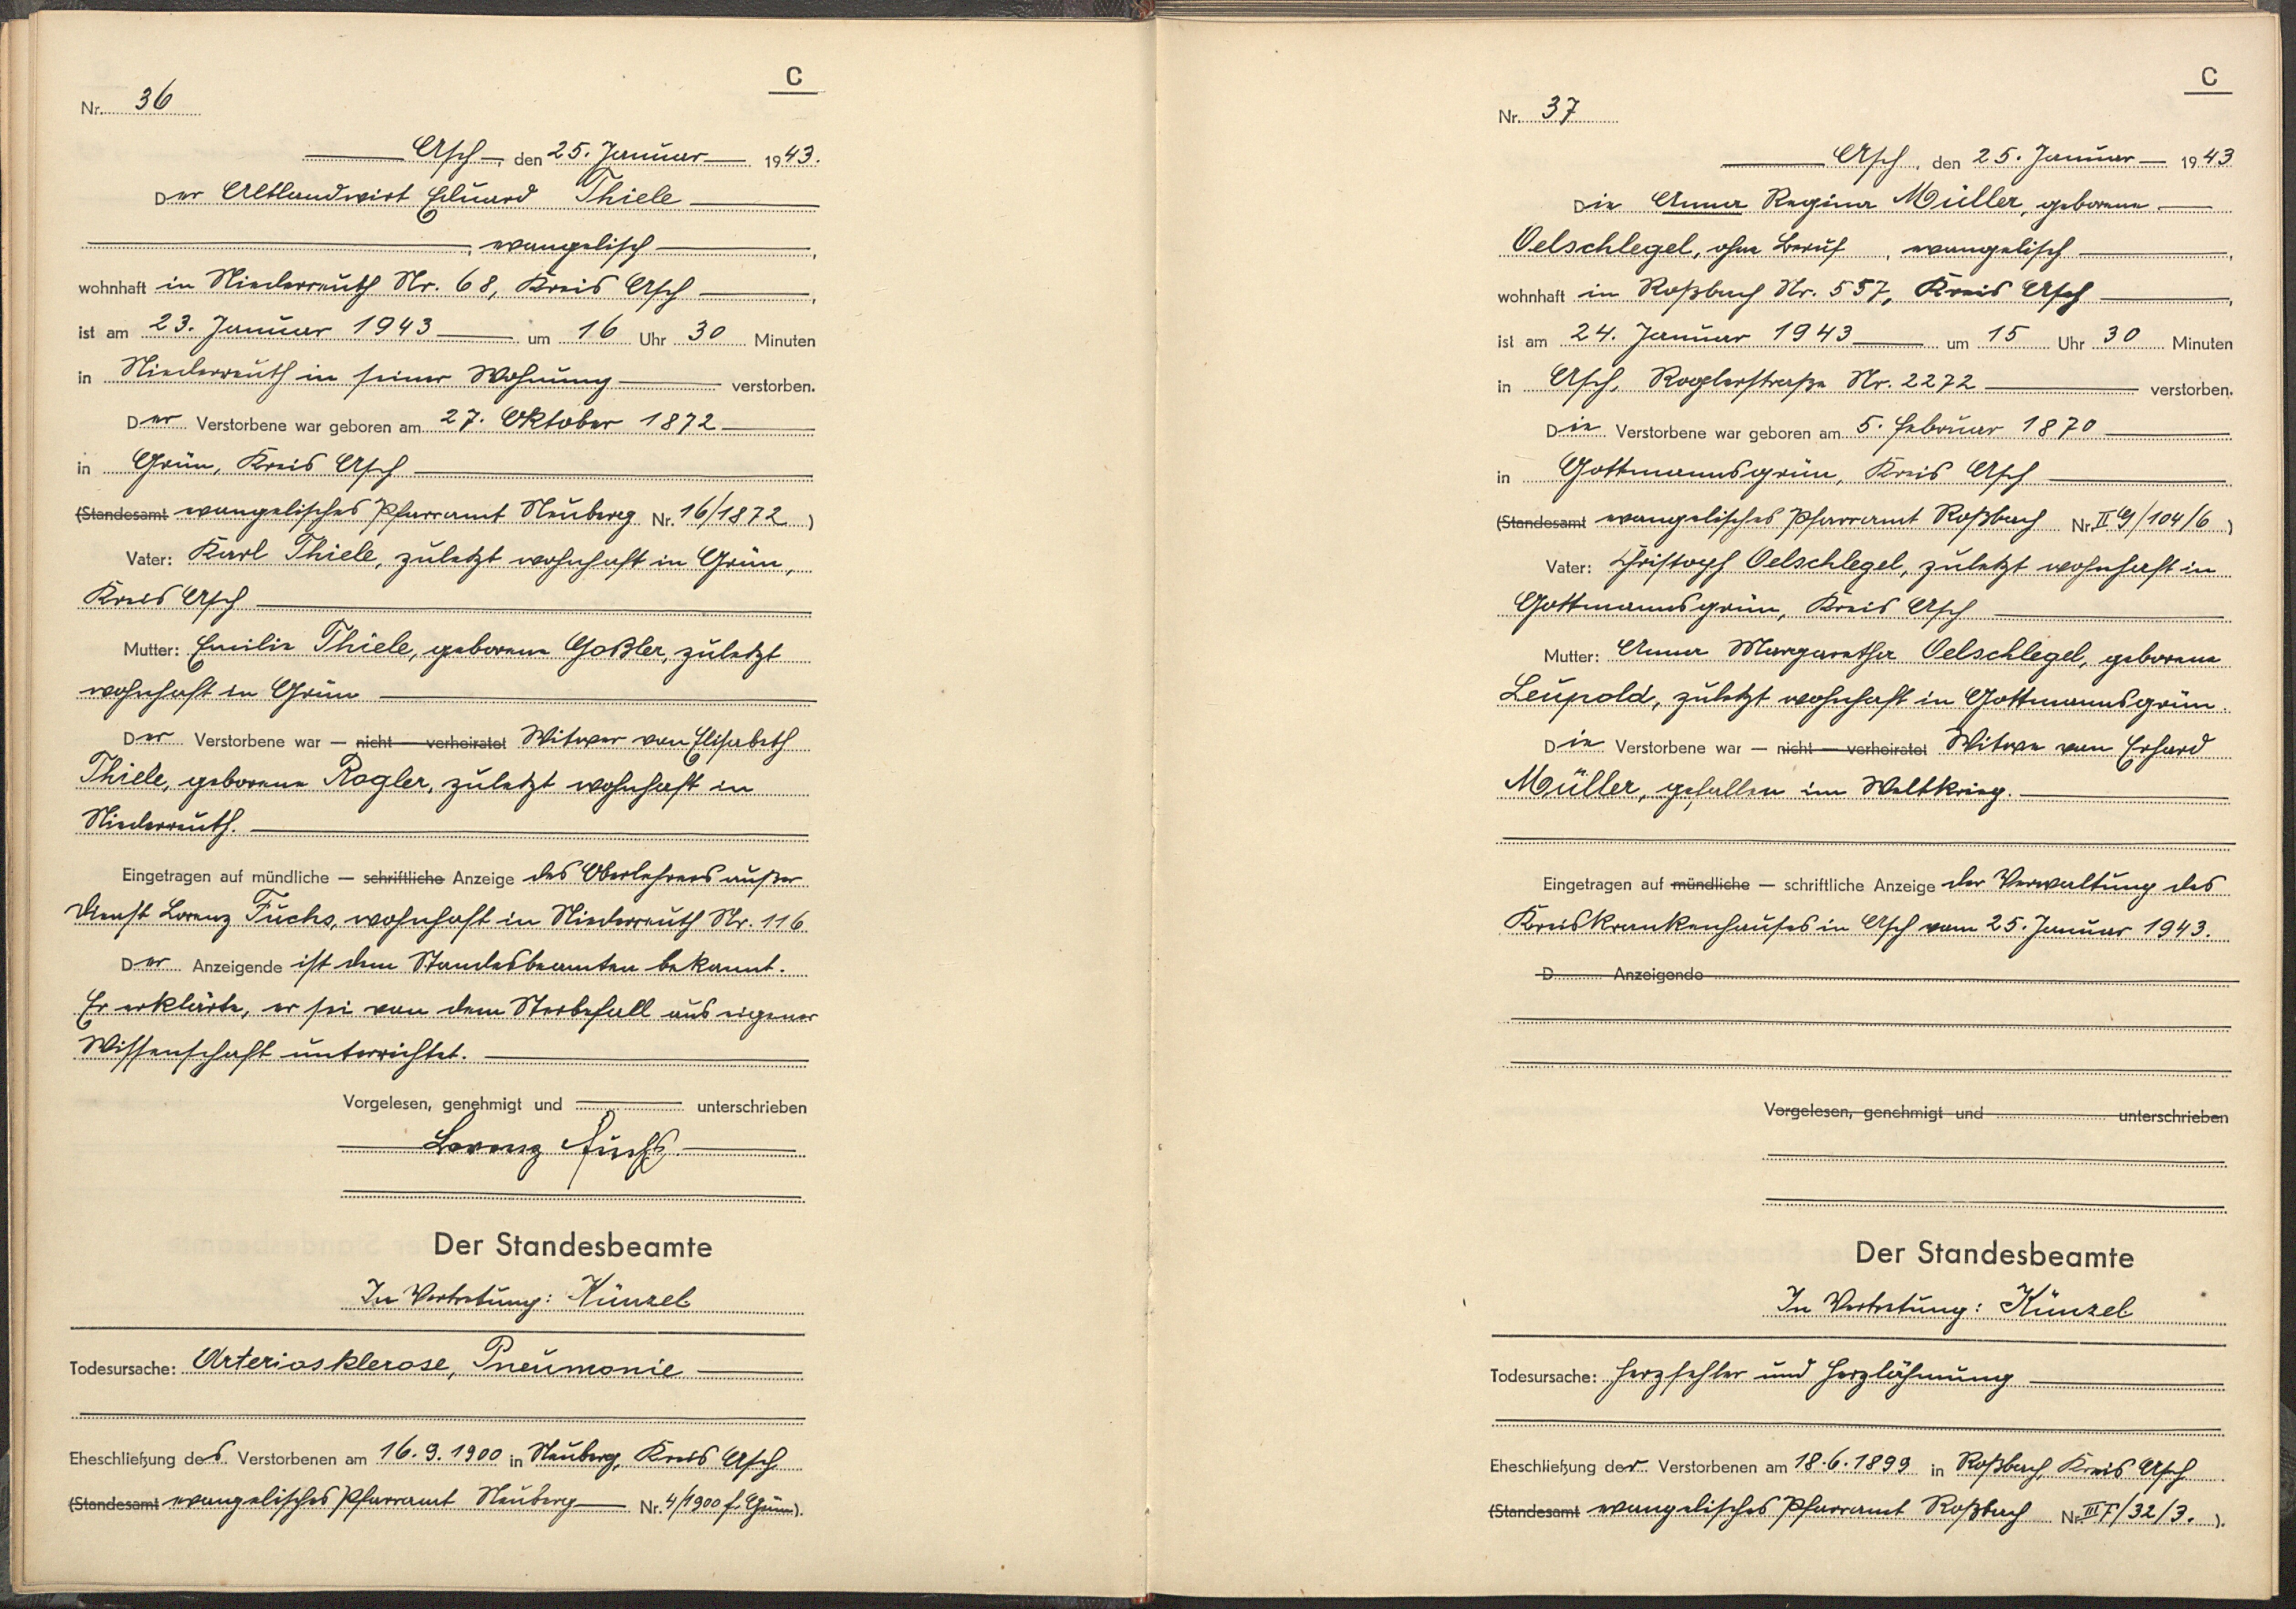 C
Nr. 36
Asch, den 25. Januar 1943.
Der Altlandwirt Eduard Thiele
, evangelisch,
wohnhaft in Niederreuth Nr. 68, Kreis Asch,
ist am 23. Januar 1943 um 16 Uhr 30 Minuten
in Niederreuth in seiner Wohnung verstorben.
Der Verstorbene war geboren am 27. Oktober 1872
in Grün, Kreis Asch
(Standesamt evangelisches Pfarramt Neuberg Nr. 16/1872)
Vater: Karl Thiele, zuletzt wohnhaft in Grün,
Kreis Asch
Mutter: Emilie Thiele, geborene Goßler, zuletzt
wohnhaft in Grün
Der Verstorbene war — nicht — verheiratet Witwer von Elisabeth
Thiele, geborene Rogler, zuletzt wohnhaft in
Niederreuth.
Eingetragen auf mündliche — schriftliche Anzeige des Oberlehrers außer
Dienst Lorenz Fuchs, wohnhaft in Niederreuth Nr. 116.
Der Anzeigende ist dem Standesbeamten bekannt.
Er erklärte, er sei von dem Sterbefall aus eigener
Wissenschaft unterrichtet.
Vorgelesen, genehmigt und unterschrieben
Lorenz Fuchs
Der Standesbeamte
In Vertretung: Künzel
Todesursache: Arteriosklerose, Pneumonie
Eheschließung des Verstorbenen am 16.9.1900 in Neuberg, Kreis Asch
(Standesamt evangelisches Pfarramt Neuberg Nr. 4/1900 f. Grün).
C
Nr. 37
Asch, den 25. Januar 1943
Die Anna Regina Müller, geborene
Oelschlegel, ohne Beruf, evangelisch,
wohnhaft in Roßbach Nr. 557, Kreis Asch,
ist am 24. Januar 1943 um 15 Uhr 30 Minuten
in Asch, Roglerstraße Nr. 2272 verstorben.
Die Verstorbene war geboren am 5. Februar 1870
in Gottmannsgrün, Kreis Asch
(Standesamt evangelisches Pfarramt Roßbach Nr. II G/104/6)
Vater: Christoph Oelschlegel, zuletzt wohnhaft in
Gottmannsgrün, Kreis Asch
Mutter: Anna Margaretha Oelschlegel, geborene
Leupold, zuletzt wohnhaft in Gottmannsgrün.
Die Verstorbene war — nicht — verheiratet Witwe von Erhard
Müller, gefallen im Weltkrieg.
Eingetragen auf mündliche — schriftliche Anzeige der Verwaltung des
Kreiskrankenhauses in Asch vom 25. Januar 1943.
D Anzeigende
Vorgelesen, genehmigt und unterschrieben
Der Standesbeamte
In Vertretung: Künzel
Todesursache: Herzfehler und Herzlähmung
Eheschließung der Verstorbenen am 18.6.1899 in Roßbach, Kreis Asch
(Standesamt evangelisches Pfarramt Roßbach Nr. III F/32/3.).